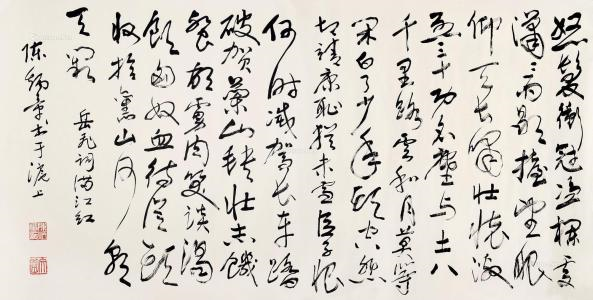 怒髮衝冠憑欄處
瀟瀟雨歇抬望眼
仰天長嘯壯懷激
烈三十功名塵與土八
千里路雲和月莫等
閑白了少年頭空悲
切靖康恥猶未雪臣子恨
何時滅駕長車踏
破賀蘭山缺壯志饑
餐胡虜肉笑談渴
飲匈奴血待從頭
收拾舊山河朝
天闕
岳飛詞滿江紅
陈 章書于滬上